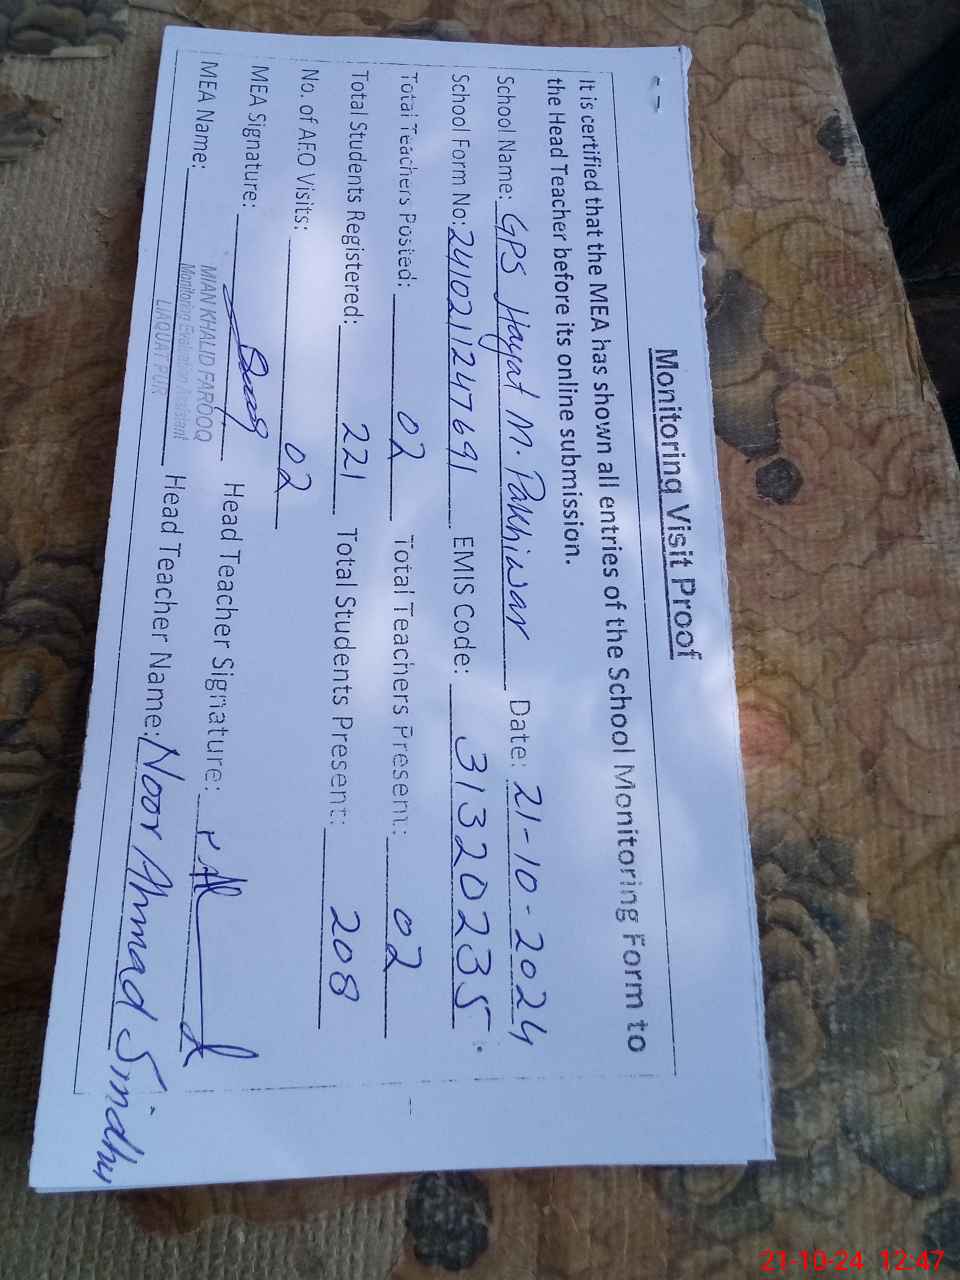 Monitoring Visit Proof
It is certified that the MEA has shown all entries of the School Monitoring Form to
the Head Teacher before its online submission.
School Name: GPS Hayat M. Pakhiwar Date: 21-10-2024
School Form No: 2410211247691 EMIS Code: 31320235
Total Teachers Posted: 02 Total Teachers Present: 02
Total Students Registered: 221 Total Students Present: 208
No. of AEO Visits: 02
MEA Signature: Head Teacher Signature:
MEA Name: MIAN KHALID FAROOQ Head Teacher Name: Noor Ahmad Sindhu
Monitoring Evaluation Assistant
LIAQUAT PUR
21-10-24 12:47